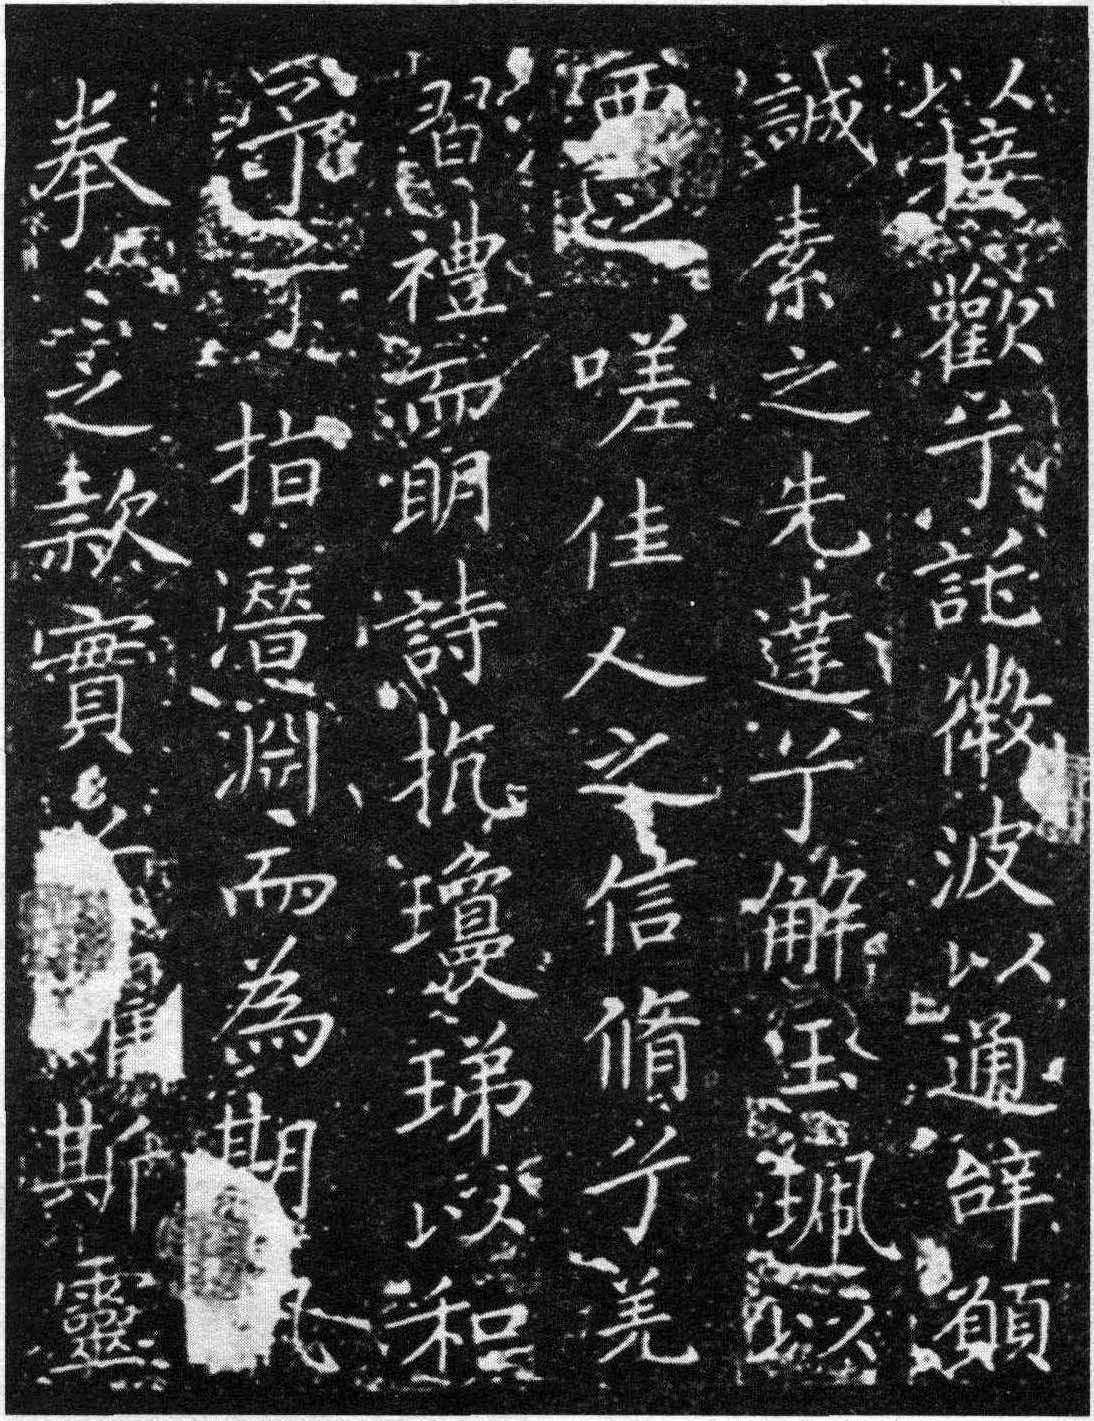 以接歡兮託微波以通辭願
誠素之先達兮解玉珮以
要之嗟佳人之信脩兮羌
習禮而明詩抗瓊珶以和
予兮指潛淵而為期
奉之款實兮懼斯靈